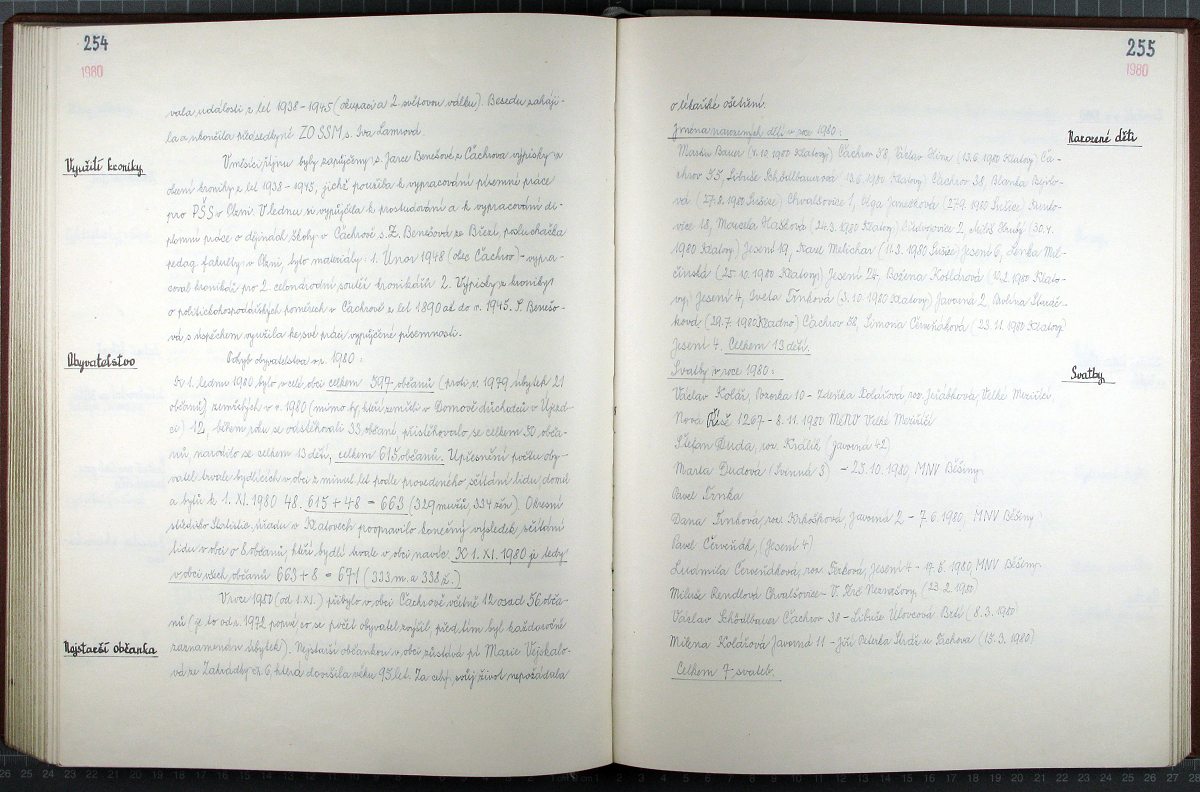 254
1980
vala události z let 1938-1945 (okupaci a 2. světovou válku). Besedu zaháji-
la a ukončila předsedkyně ZO SSM s. Iva Lamrová.
Využití kroniky
V měsíci říjnu byly zapůjčeny s. Jarce Benešové z Čachrova výpisky z
obecní kroniky z let 1938-1945, jichž použila k vypracování písemné práce
pro PŠS v Plzni. V lednu si vypůjčila k prostudování a k vypracování di-
plomní práce o dějinách školy v Čachrově s. Z. Benešová ze Březí, posluchačka
pedag. fakulty v Plzni, tyto materiály: 1. Únor 1948 (obec Čachrov) - vypra-
coval kronikář pro 2. celonárodní soutěž kronikářů 2. Výpisky z kroniky
o politickohospodářských poměrech v Čachrově z let 1890 až do r. 1945. S. Benešo-
vá s úspěchem využila ke své práci vypůjčené písemnosti.
Obyvatelstvo
Pohyb obyvatelstva v r. 1980:
K 1. lednu 1980 bylo v celé obci celkem 597 občanů (proti r. 1979 úbytek 21
občanů) zemřelých v r. 1980 (mimo ty, kteří zemřeli v Domově důchodců v Újezd-
ci) 12, během roku se odstěhovali 33 občané, přistěhovalo se celkem 50 obča-
nů narodilo se celkem 13 dětí, celkem 615 občanů. Upřesnění počtu oby-
vatel trvale bydlících v obci z minul. let podle provedeného sčítání lidu, domů
a bytů k 1. XI. 1980 48. 615 + 48 = 663 (329 mužů, 334 žen). Okresní
středisko Statistic. úřadu v Klatovech poopravilo konečný výsledek sčítání
lidu v obci o 8 občanů, kteří bydlí trvale v obci navíc. K 1. XI. 1980 je tedy
v obci všech občanů 663 + 8 = 671 (333 m. a 338 ž.)
V roce 1980 (od 1. XI.) přibylo v obci Čachrově včetně 12 osad 56 obča-
nů (je to od r. 1972 poprvé co se počet obyvatel zvýšil, před tím byl každoročně
zaznamenán úbytek). Nejstarší občankou v obci zůstává pí Marie Vejskalo-
Nejstarší občanka
vá ze Zahrádky čp. 6, která dovršila věku 95 let. Za celý svůj život nepožádala
255
1980
o lékařské ošetření.
Jména narozených dětí v roce 1980:
Narozené děti
Martin Bauer (4. 10. 1980 Klatovy) Čachrov 58, Václav (13. 6. 1980 Klatovy) Ča-
chrov 55, Libuše Schödlbauerová 13. 6. 1980 Klatovy) Čachrov 38, Blanka
vá (27. 8. 1980 Sušice) Chvalšovice 1, Olga Janešková (27. 9. 1980 Sušice)
vice 18, Marcela Hašková (24. 3. 1980 Klatovy) 2, Miloš Hrubý (30. 4.
1980 Klatovy) Jesení 19, Karel Melichar (11. 3. 1980 Sušice) Jesení 6, Lenka Mil-
činská (25. 10. 1980 Klatovy) Jesení 24, Božena Kotlárová (1980 Klato-
vy) Jesení 4, Iveta Trnková (3. 10. 1980 Klatovy) Javorná 2
ková (29. 7. 1980 Kladno) Čachrov 58, Simona Červeňáková (23. 11. 1980 Klatovy)
Jesení 4. Celkem 13 dětí.
Svatby v roce 1980:
Svatby
Václav Kolář, 10 - Zdeňka Kolářová, roz. Jeřábková, Velké Meziříčí,
Nová Říše 1267 - 8. 11. 1980 MěNV Velké Meziříčí
Štefan Duda, roz. Králik (Javorná 42)
Marta Dudová (Svinná 3) - 25. 10. 1980, MNV Běšiny
Pavel Trnka
Dana Trnková, roz. Krkošková Javorná 2 - 7. 6. 1980, MNV Běšiny
Pavel Červeňák, (Jesení 4)
Ludmila Červeňáková, roz. Jesení 4 - 17. 6. 1980, MNV Běšiny.
Miluše Rendlová Chvalšovice - V. (23. 2. 1980)
Václav Schödlbauer Čachrov 38 - Libuše Úlovcová (8. 3. 1980)
Milena Kolářová Javorná 11 - Jiří (15. 3. 1980)
Celkem 7 svateb.